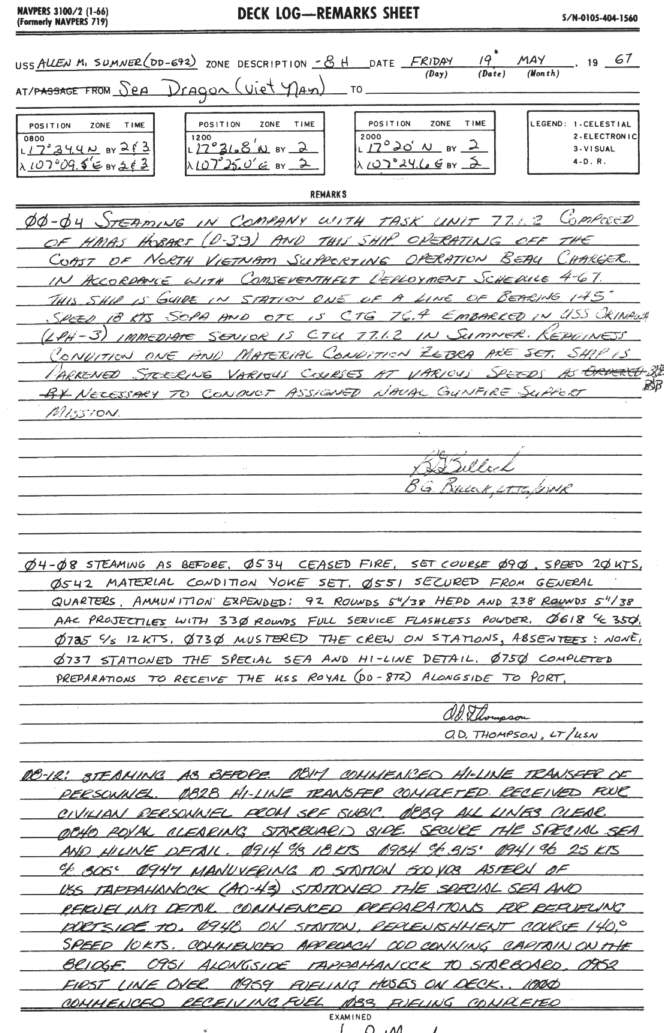 NAVPERS 3100/2 (1-66)
(Formerly NAVPERS 719)
DECK LOG—REMARKS SHEET
S/N-0105-404-1560
USS ALLEN M. SUMNER (DD-692) ZONE DESCRIPTION -8 H DATE FRIDAY 19 MAY, 19 67
(Day) (Date) (Month)
AT/PASSAGE FROM SEA DRAGON (VIET NAM) TO
POSITION ZONE TIME
0800
L 17°34.4 N BY 2 & 3
λ 107°09.5' E BY 2 & 3
POSITION ZONE TIME
1200
L 17°31.8' N BY 2
λ 107°25.0' E BY 2
POSITION ZONE TIME
2000
L 17°20' N BY 2
λ 107°24.6 E BY 2
LEGEND: 1-CELESTIAL
2-ELECTRONIC
3-VISUAL
4-D. R.
REMARKS
00-04 STEAMING IN COMPANY WITH TASK UNIT 77.1.2 COMPOSED
OF HMAS HOBART (D-39) AND THIS SHIP OPERATING OFF THE
COAST OF NORTH VIETNAM SUPPORTING OPERATION BEAU CHARGER.
IN ACCORDANCE WITH COMSEVENTHFLT DEPLOYMENT SCHEDULE 4-67.
THIS SHIP IS GUIDE IN STATION ONE OF A LINE OF BEARING 145°
SPEED 18 KTS SOPA AND OTC IS CTG 76.4 EMBARKED IN USS OKINAWA
(LPH-3) IMMEDIATE SENIOR IS CTU 77.1.2 IN SUMNER. READINESS
CONDITION ONE AND MATERIAL CONDITION ZEBRA ARE SET. SHIP IS
DARKENED STEERING VARIOUS COURSES AT VARIOUS SPEEDS AS ORDERED
BY NECESSARY TO CONDUCT ASSIGNED NAVAL GUNFIRE SUPPORT
MISSION.
B G BULLOCK, LTJG, USNR
04-08 STEAMING AS BEFORE. 0534 CEASED FIRE, SET COURSE 090. SPEED 20 KTS,
0542 MATERIAL CONDITION YOKE SET. 0551 SECURED FROM GENERAL
QUARTERS. AMMUNITION EXPENDED: 92 ROUNDS 5"/38 HEPD AND 238 ROUNDS 5"/38
AAC PROJECTILES WITH 330 ROUNDS FULL SERVICE FLASHLESS POWDER. 0618 C/C 350.
0725 C/S 12 KTS. 0730 MUSTERED THE CREW ON STATIONS, ABSENTEES: NONE,
0737 STATIONED THE SPECIAL SEA AND HI-LINE DETAIL. 0750 COMPLETED
PREPARATIONS TO RECEIVE THE USS ROYAL (DD-872) ALONGSIDE TO PORT.
O.D. Thompson
O.D. THOMPSON, LT/USN
08-12: STEAMING AS BEFORE 0817 COMMENCED HI-LINE TRANSFER OF
PERSONNEL. 0828 HI-LINE TRANSFER COMPLETED RECEIVED FOUR
CIVILIAN PERSONNEL FROM SRF SUBIC. 0839 ALL LINES CLEAR.
0840 ROYAL CLEARING STARBOARD SIDE SECURE THE SPECIAL SEA
AND HILINE DETAIL. 0914 C/S 18 KTS 0934 C/C 315° 0941 C/S 25 KTS
C/C 305° 0947 MANUVERING TO STATION 500 YDS ASTERN OF
USS TAPPAHANOCK (AO-43) STATIONED THE SPECIAL SEA AND
REFUELING DETAIL COMMENCED PREPARATIONS FOR REFUELING
PORTSIDE TO. 0948 ON STATION, REPLENISHMENT COURSE 140,°
SPEED 10 KTS. COMMENCED APPROACH OOD CONNING CAPTAIN ON THE
BRIDGE. 0951 ALONGSIDE TAPPAHANOCK TO STARBOARD. 0952
FIRST LINE OVER 0959 FUELING HOSES ON DECK.. 1000
COMMENCED RECEIVING FUEL FUELING COMPLETED
EXAMINED